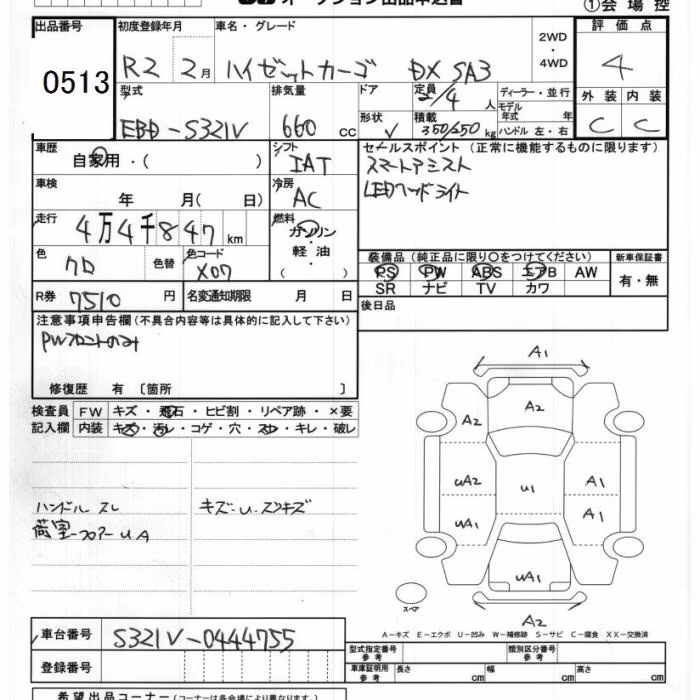 オークション出品申込書
①会場控
出品番号
0513
初度登録年月
R2 2月
車名・グレード
ハイゼットカーゴ DX SA3
2WD
・
4WD
評価点
4
外装 内装
C C
型式
EBD-S321V
排気量
660 cc
ドア
形状
V
定員
2/4 人
積載
350/250 kg
ディーラー・並行
モデル年式 年
ハンドル 左・右
車歴
自家用・( )
シフト
IAT
セールスポイント (正常に機能するものに限ります)
スマートアシスト
LEDヘッドライト
車検
年 月( 日)
冷房
AC
走行
4万4千847 km
燃料
ガソリン
・
軽油
・
( )
色
クロ
色替
色コード
X07
装備品 (純正品に限り○をつけてください)
PS PW ABS エアB AW
SR ナビ TV カワ
新車保証書
有・無
R券 7510 円
名変通知期限 月 日
後日品
注意事項申告欄(不具合内容等は具体的に記入して下さい)
PWフロントのみ
修復歴 有〔箇所 〕
検査員
記入欄
FW キズ・飛石・ヒビ割・リペア跡・×要
内装 キズ・汚れ・コゲ・穴・スレ・キレ・破レ
ハンドル スレ
キズ・U・スリキズ
荷室フロアーUA
A1
A2
A2
uA2
u1
A1
uA1
A1
uA1
スペア
A2
A-キズ E-エクボ U-凹み W-補修跡 S-サビ C-腐食 XX-交換済
車台番号 S321V-0444755
登録番号
型式指定番号
参考
類別区分番号
参考
車庫証明用
参考
長さ cm 幅 cm 高さ cm
希望出品コーナー(コーナーは各会場により異なります。)